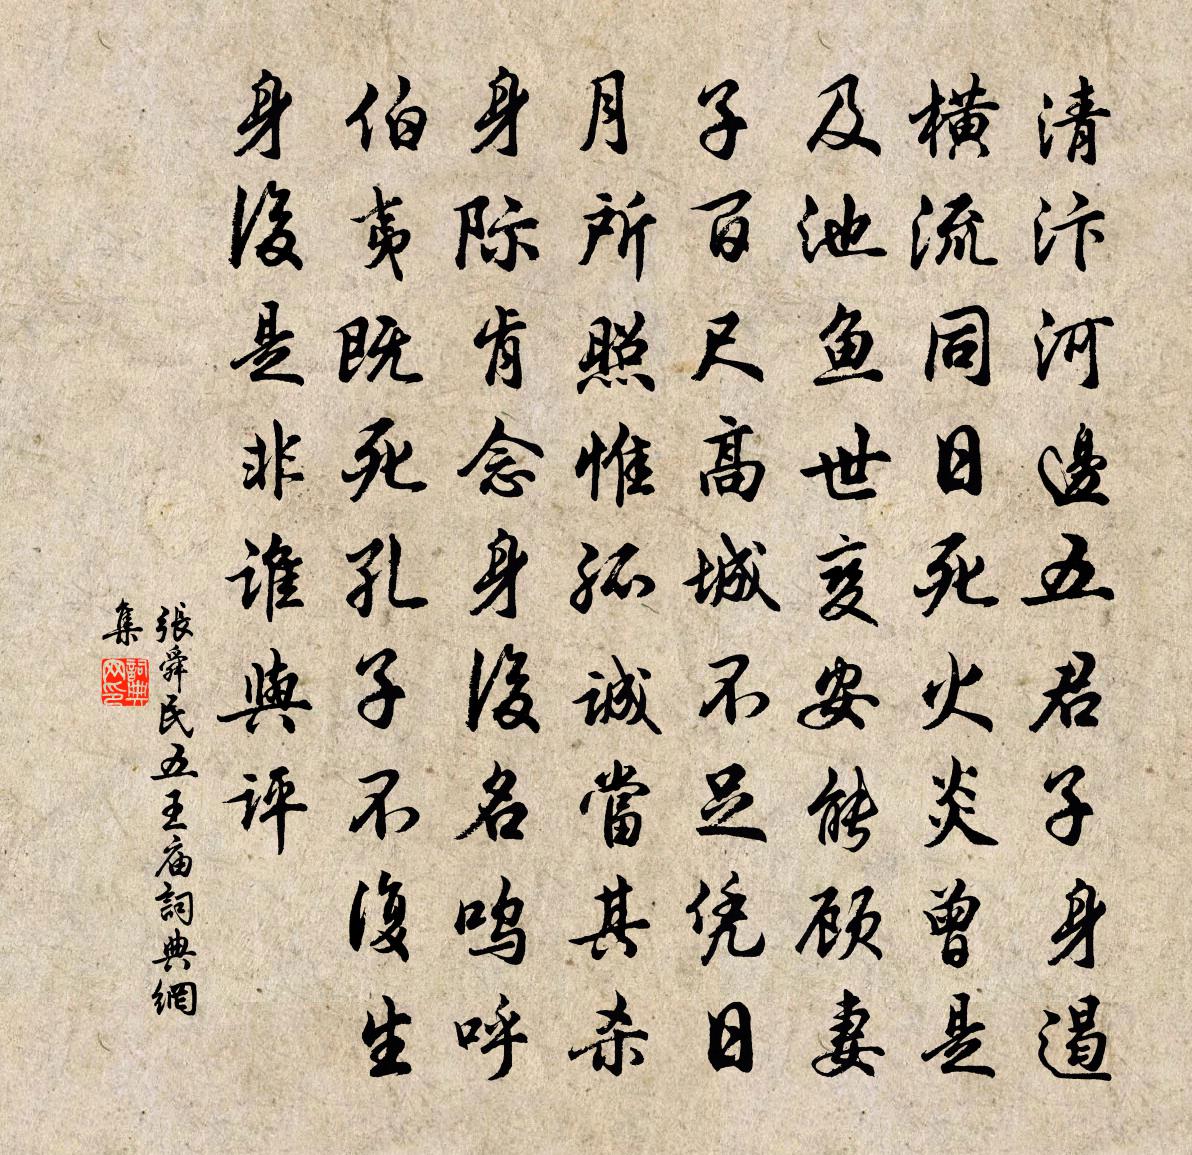 清汴河邊五君子身遏
橫流同日死火炎曾是
及池鱼世变安能顾妻
子百尺高城不足凭日
月所照惟孤诚當其杀
身际肯念身後名鸣呼
伯夷既死孔子不復生
身後是非谁與评
張舜民五王庙詞典網
集
詞典网印